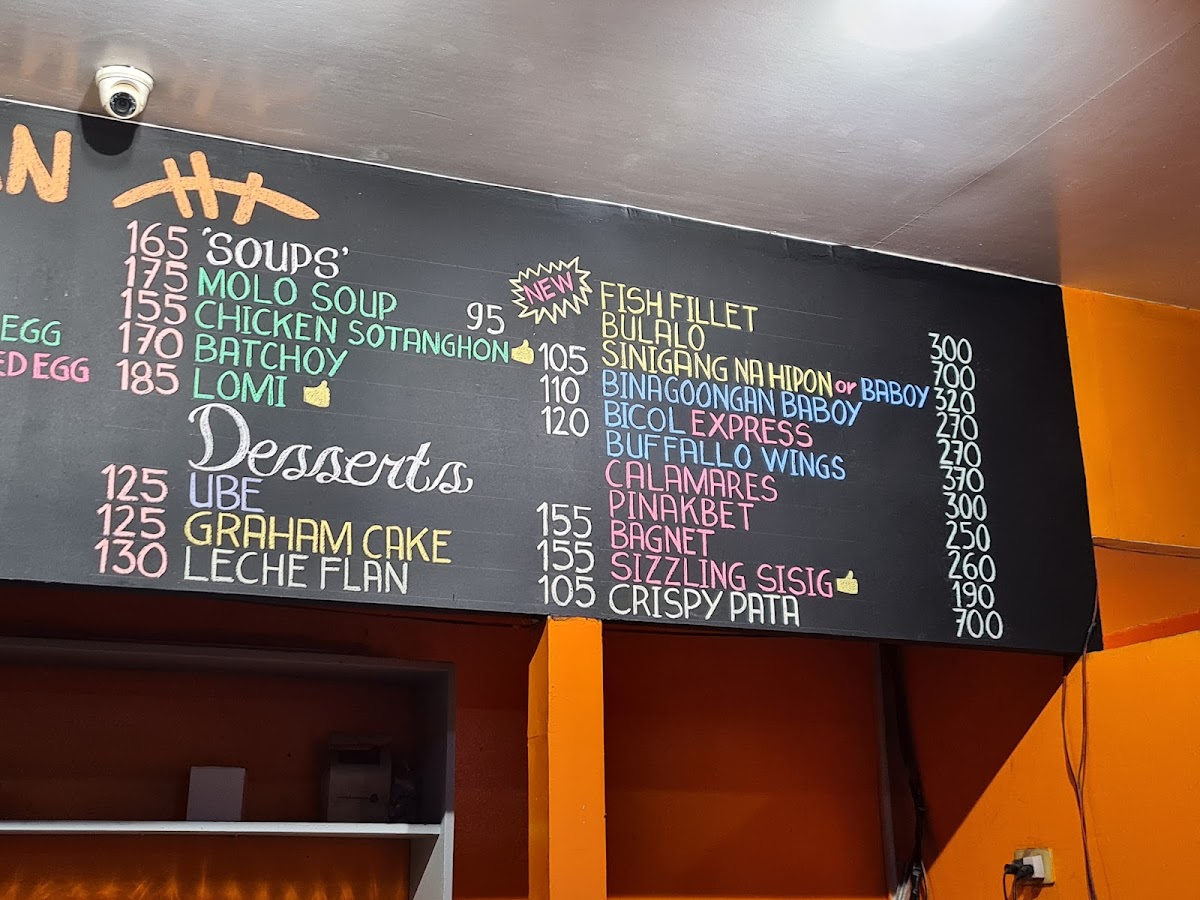 N
165
175
155
EGG 170
ED EGG 185
125
125
130
'SOUPS'
MOLO SOUP 95
CHICKEN SOTANGHON 105
BATCHOY 110
LOMI 120
Desserts
UBE 155
GRAHAM CAKE 155
LECHE FLAN 105
NEW
FISH FILLET 300
BULALO 700
SINIGANG NA HIPON or BABOY 320
BINAGOONGAN BABOY 270
BICOL EXPRESS 270
BUFFALLO WINGS 370
CALAMARES 300
PINAKBET 250
BAGNET 260
SIZZLING SISIG 190
CRISPY PATA 700